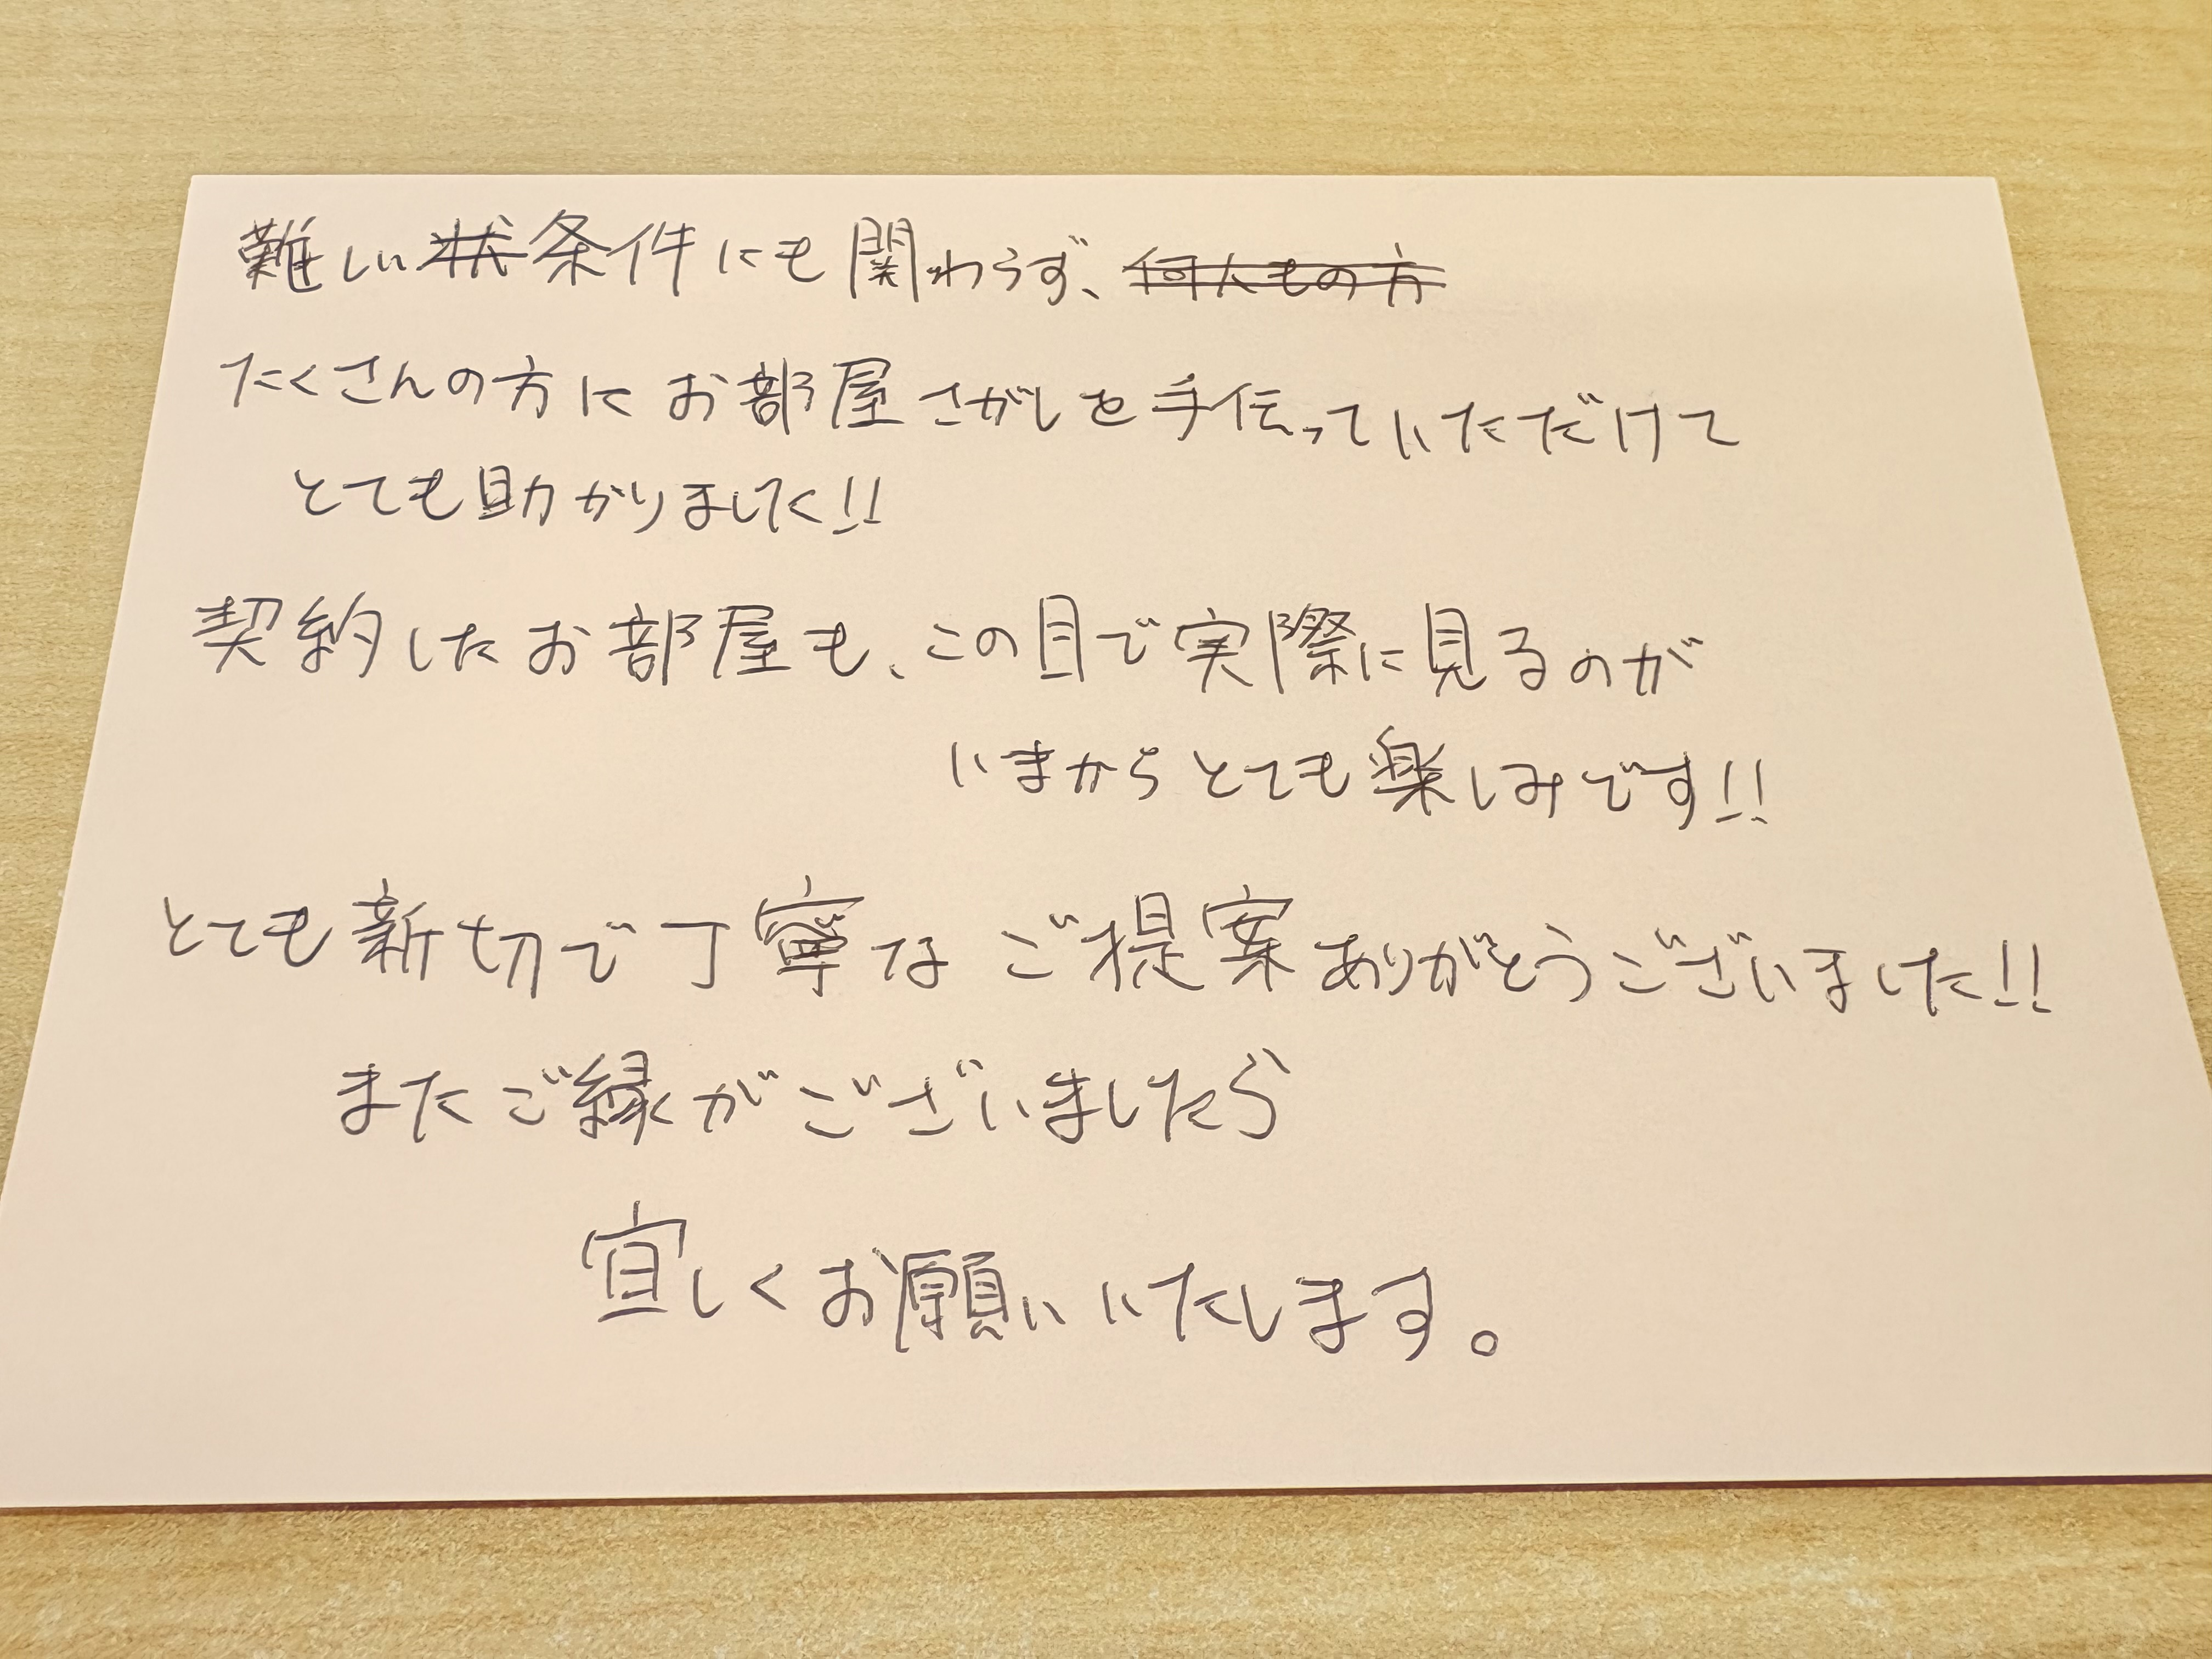 難しい状条件にも関わらず、何人もの方
たくさんの方にお部屋さがしを手伝っていただけて
とても助かりました!!
契約したお部屋も、この目で実際に見るのが
いまからとても楽しみです!!
とても新切で丁寧なご提案ありがとうございました!!
またご縁がございましたら
宜しくお願いいたします。